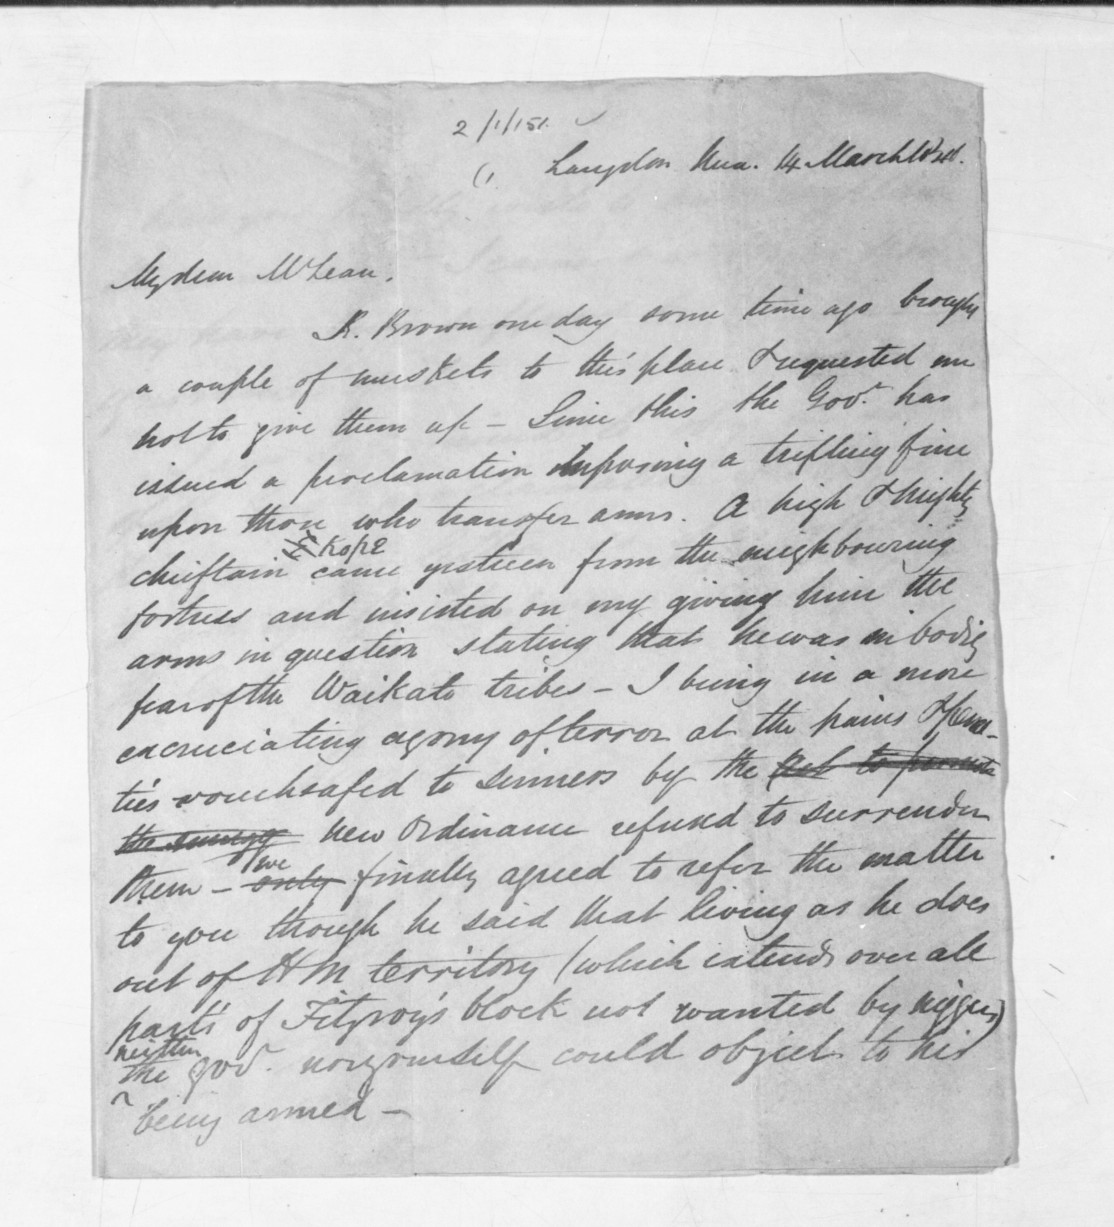 2/1/151.
(1.
Langdon Hua. 14 March
My dear McLean.
R. Brown one day some time ago brought
a couple of muskets to this place & requested me
not to give them up - Since this the Govr. has
issued a proclamation imposing a trifling fine
upon those who transfer arms. A high & mighty
E Kope
chieftain came yestreen from the neighbouring
fortress and insisted on my giving him the
arms in question stating that he was in bodily
fear of the Waikato tribes - I being in a more
excruciating agony of terror at the pains & penal-
ties vouchsafed to sinners by the
new Ordinance refused to surrender
we
them - only finally agreed to refer the matter
to you though he said that living as he does
out of HM territory (which extends over all
parts of Fitzroy's block not wanted by niggers)
neither
the govr. nor yourself could object to his
being armed -